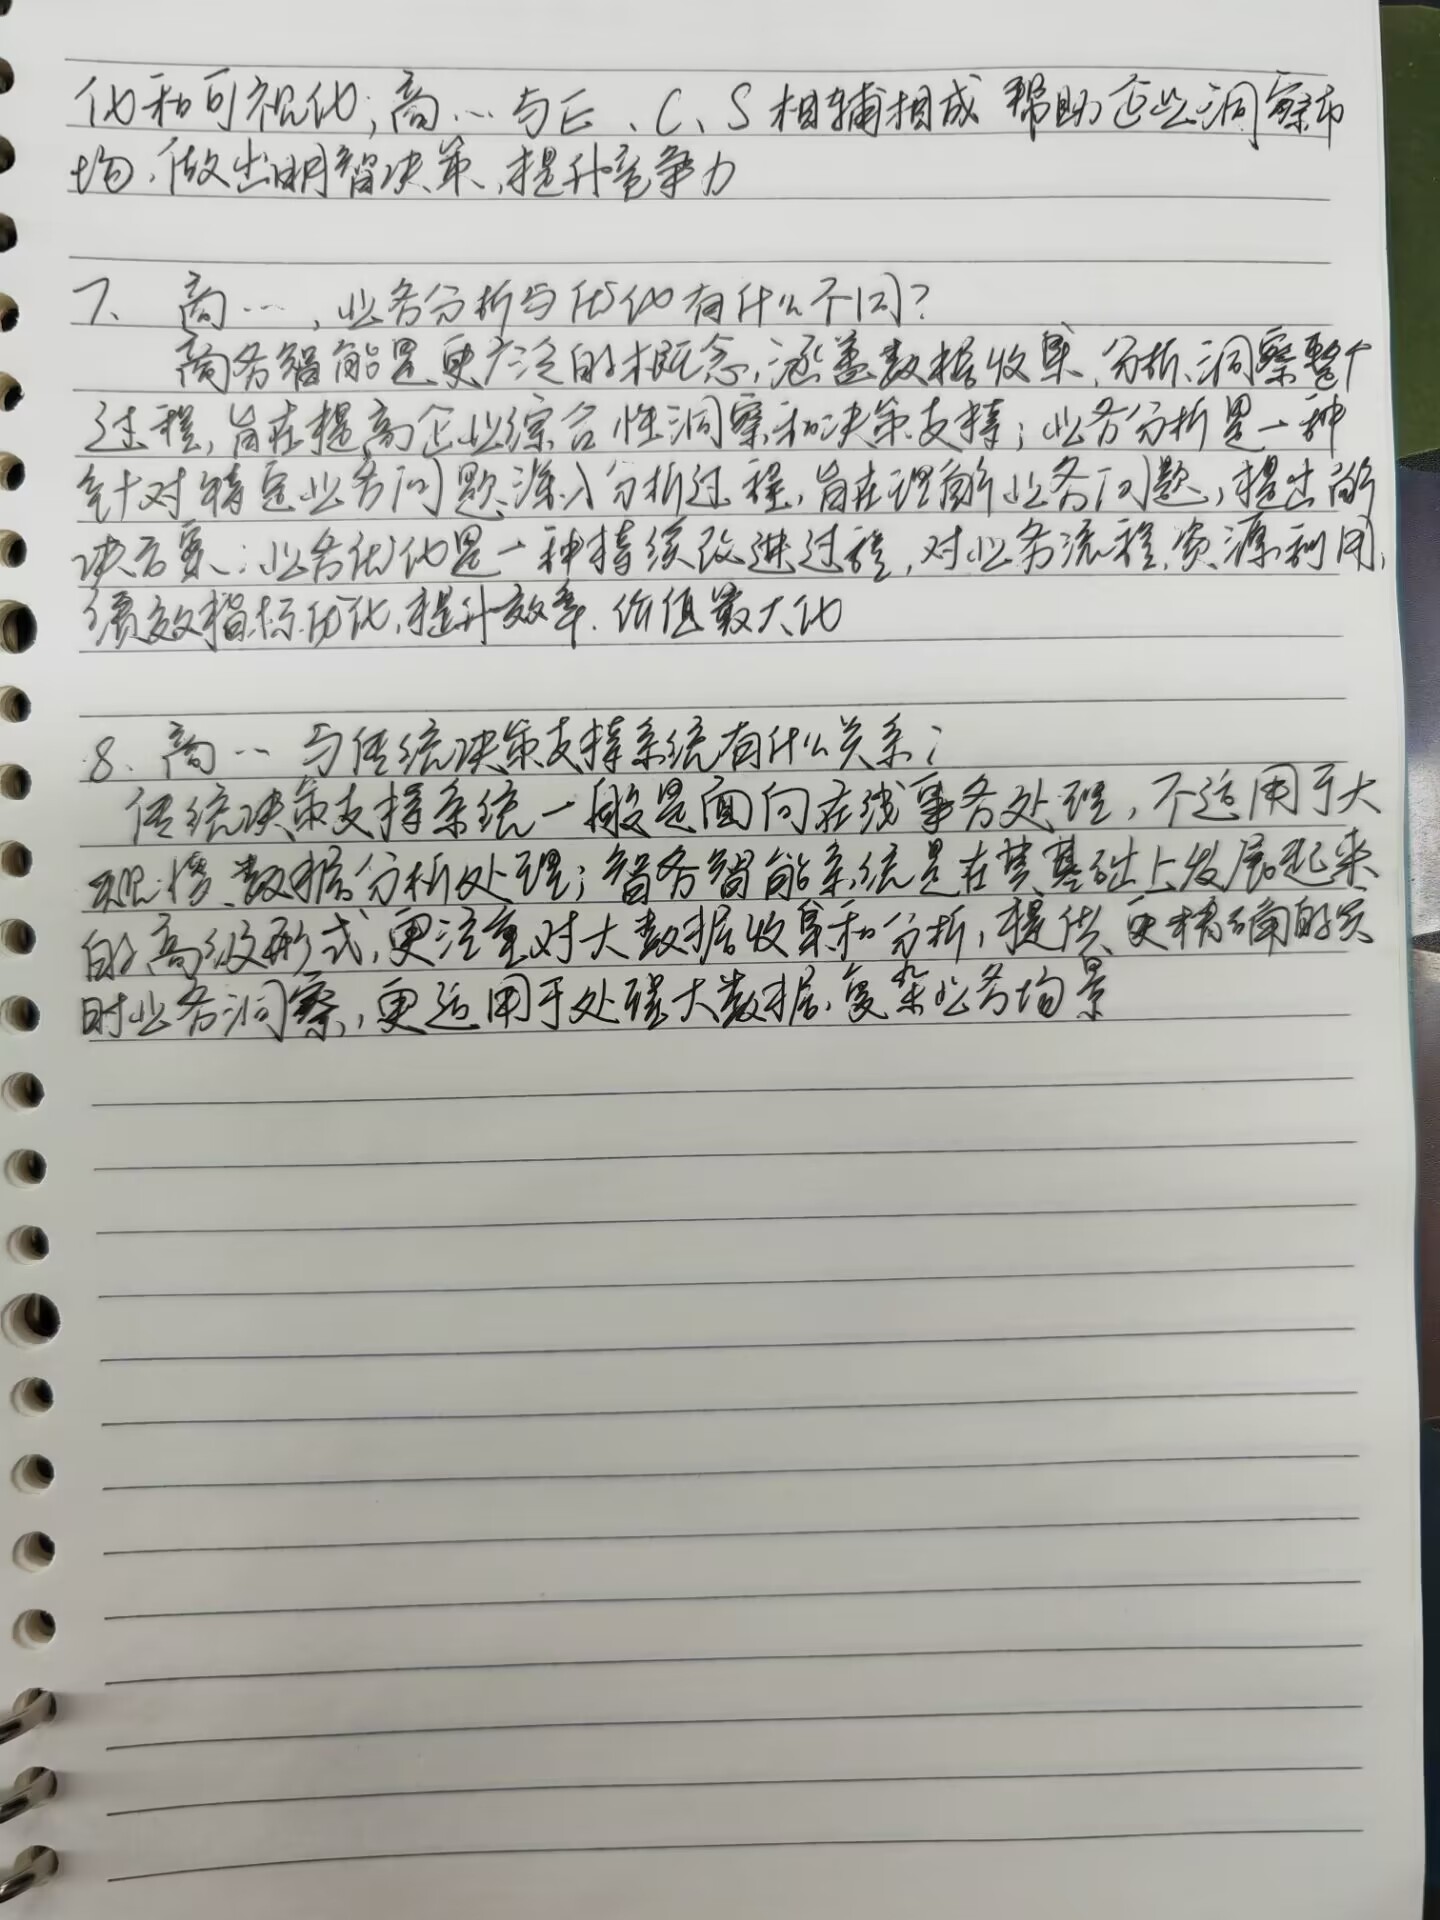 化和可视化;高…与E、C、S相辅相成 帮助企业洞察市
场、做出明智决策,提升竞争力
7、高…,业务分析与优化有什么不同?
商务智能是更广泛的概念,涵盖数据收集、分析、洞察整个
过程,旨在提高企业综合性洞察和决策支持;业务分析是一种
针对特定业务问题深入分析过程,旨在理解业务问题,提出解
决方案;业务优化是一种持续改进过程,对业务流程,资源利用,
绩效指标优化,提升效率、价值最大化
8、高…与传统决策支持系统有什么关系;
传统决策支持系统一般是面向在线事务处理,不适用于大
规模数据分析处理;智务智能系统是在其基础上发展起来
的高级形式,更注重对大数据收集和分析,提供更精确的实
时业务洞察,更适用于处理大数据、复杂业务场景